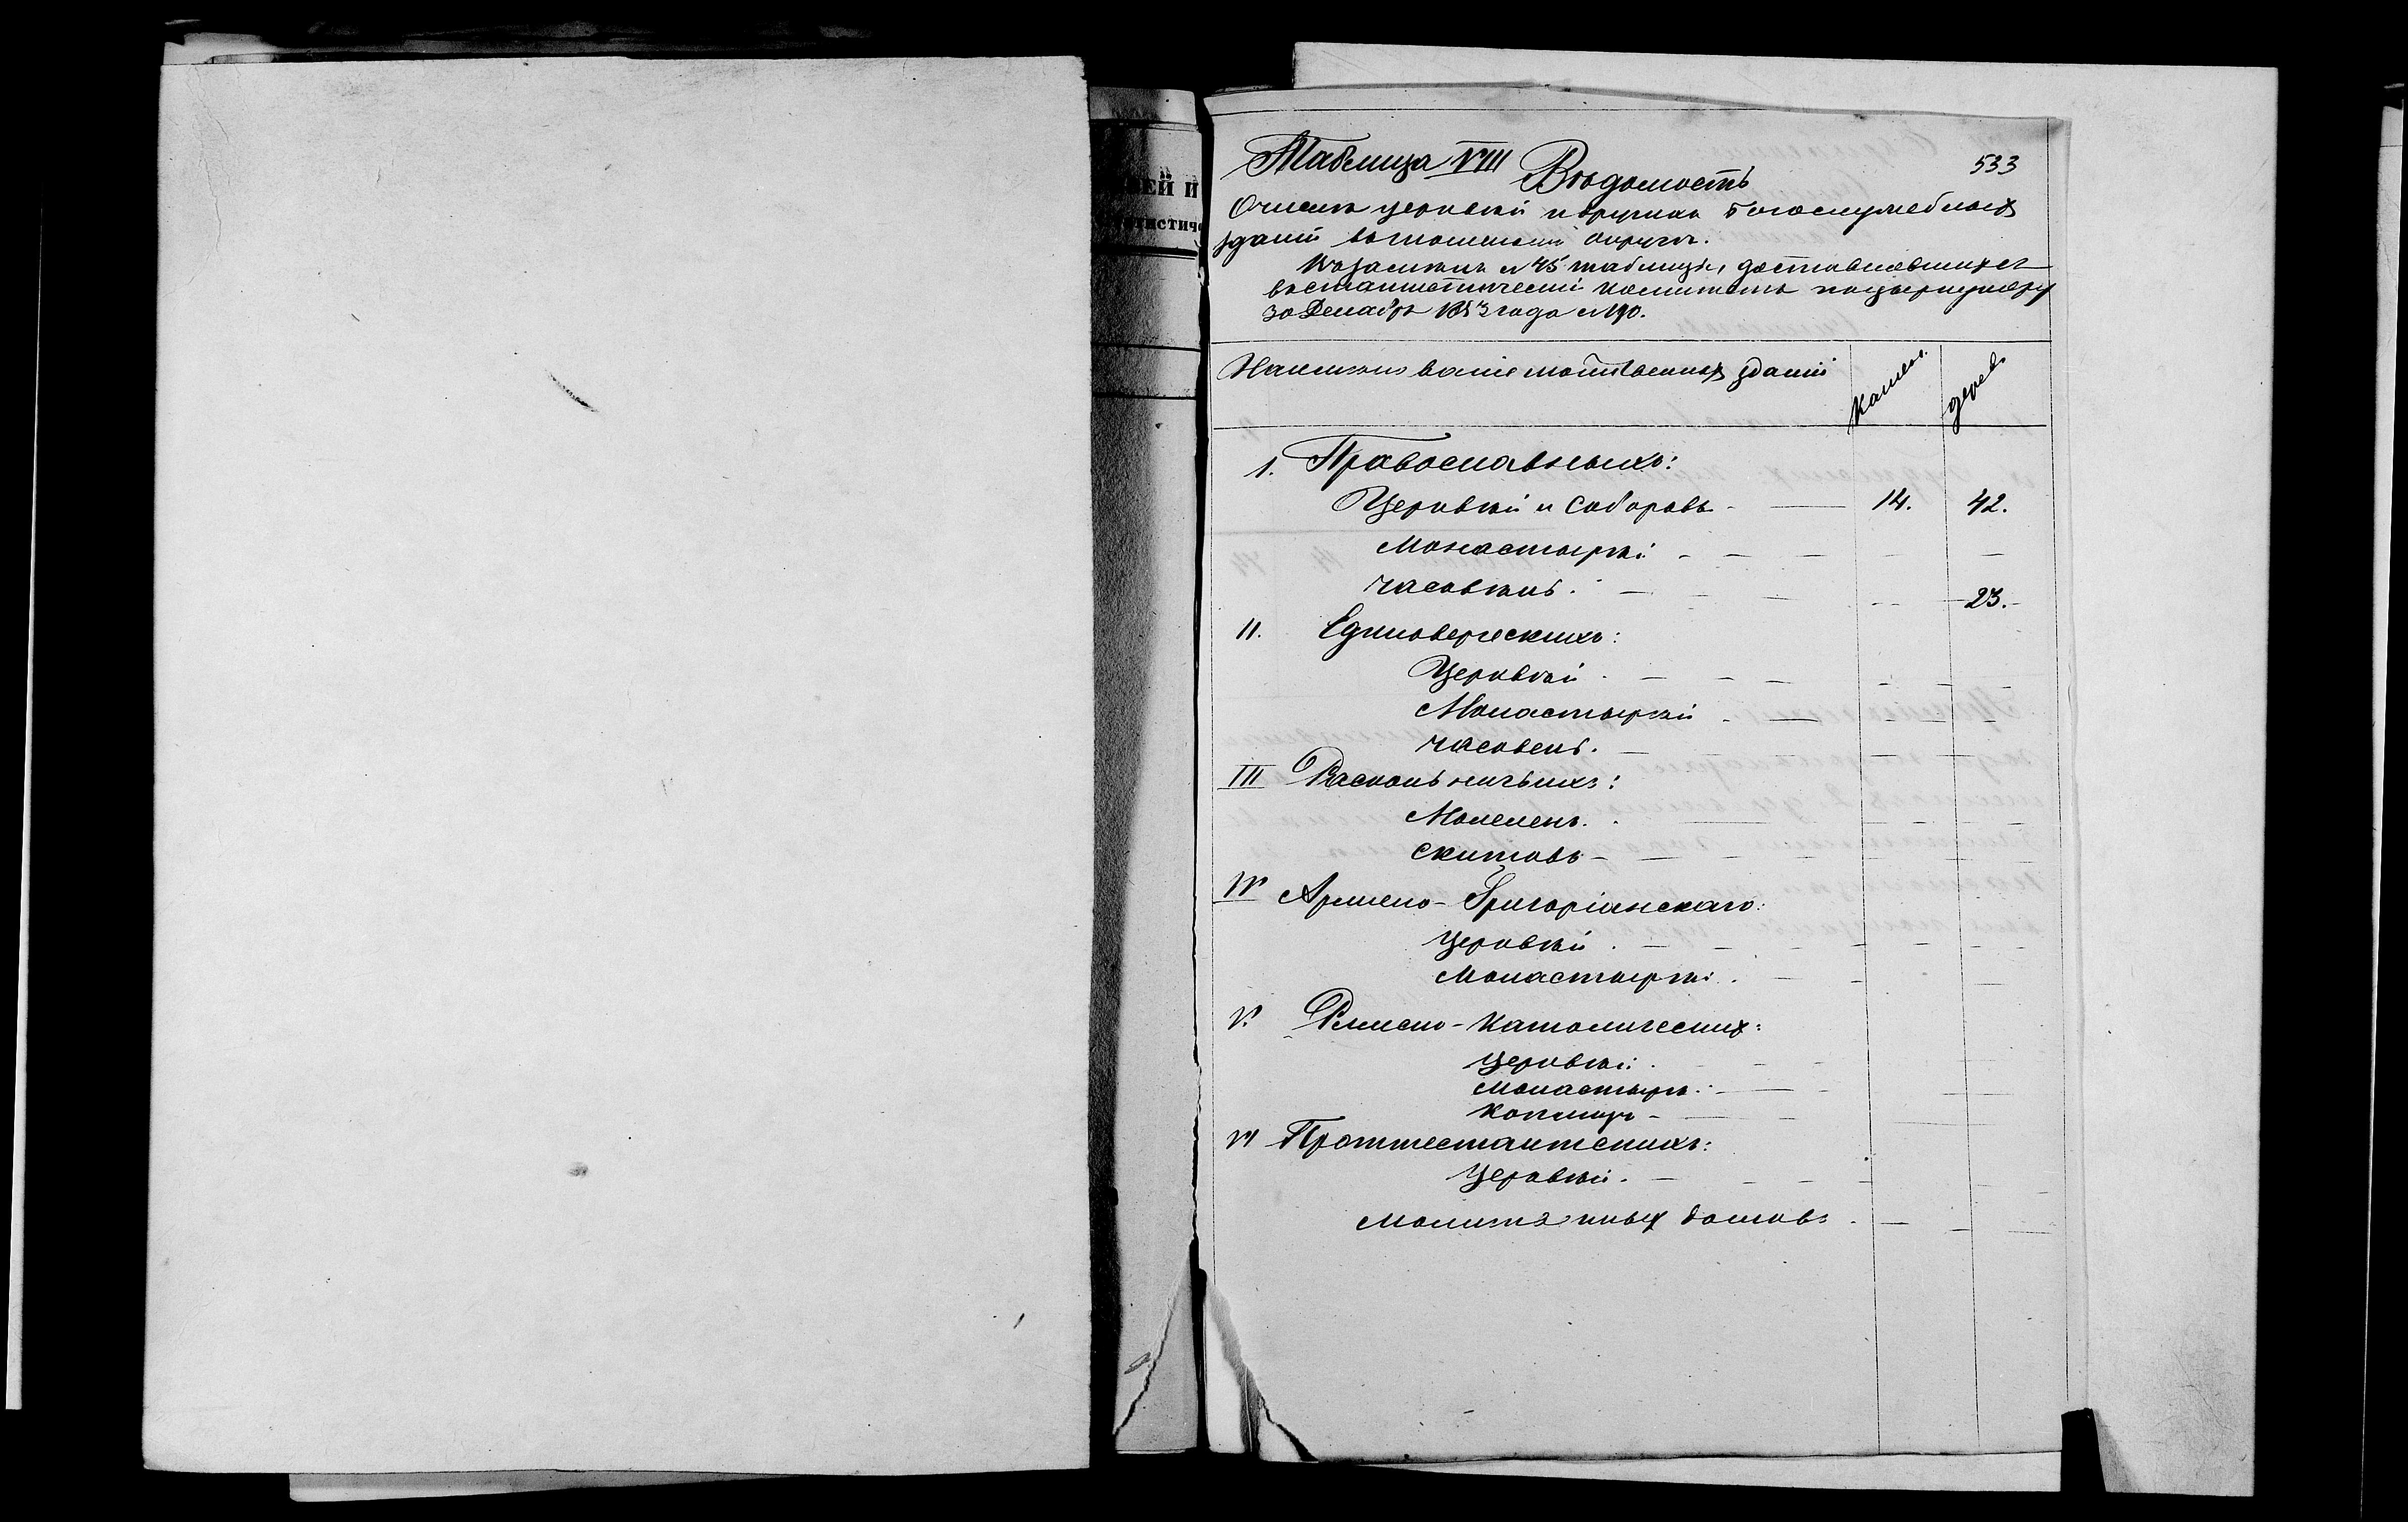 ЕЙ И
Таблица VIII
533
Вѣдомость
О числѣ церквей и другихъ Богослужебныхъ
зданій въ Томскомъ округѣ.
таблицы, доставлявшихся
въ статистическій комитетъ по циркуляру
30 Декабря 1853 года № 190.
Наименованіе молитвенныхъ зданій
Камен.
дерев.
1. Православныхъ:
Церквей и Соборовъ - — 14. 42.
Монастырей - — — - —
часовень. — - — - - — 23. -
II. Единоверческихъ:
Церквей . — - — - - - -
Монастырей - — - - -
часовень. — - — - - -
III Раскольничьихъ:
Молелень. . — - - -
Скитовъ - — - — - -
IV Армено-Григоріанскаго:
Церквей . — - - - - - -
Монастырей . - - -
V. Римско-Католическихъ:
Церквей . - - - -
Монастырь. — - - -
VI Проттестантскихъ:
Церквей . — - - - -
Молитвенныхъ домовъ . — - -